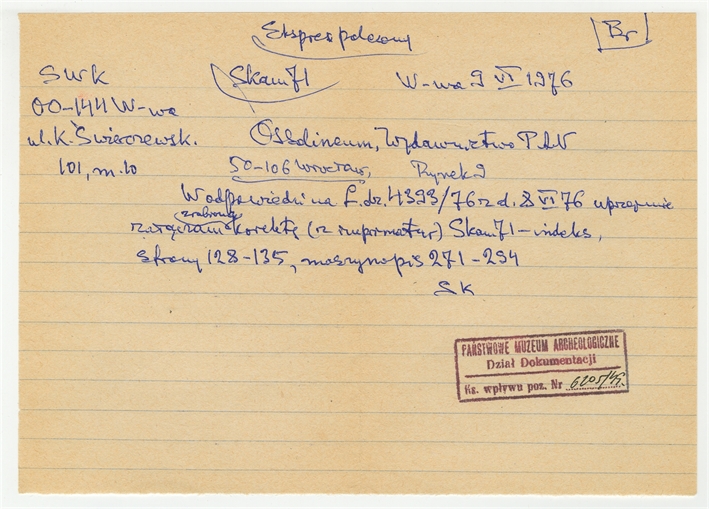 Ekspres polecony
Br
SWK Skam 71 W-wa 9 VI 1976
00-144 W-wa
ul. K. Świerczewsk. Ossolineum, Wydawnictwo PAN
101, m. 10 50-106 Wrocław, Rynek 9
W odpowiedzi na L. dz. 4393/76 z d. 8 VI 76 uprzejmie
zrobioną
załączam korektę (z informatur) Skam 71 - indeks,
strony 128-135, maszynopis 271-294
SK
PAŃSTWOWE MUZEUM ARCHEOLOGICZNE
Dział Dokumentacji
Ks. wpływu poz. Nr